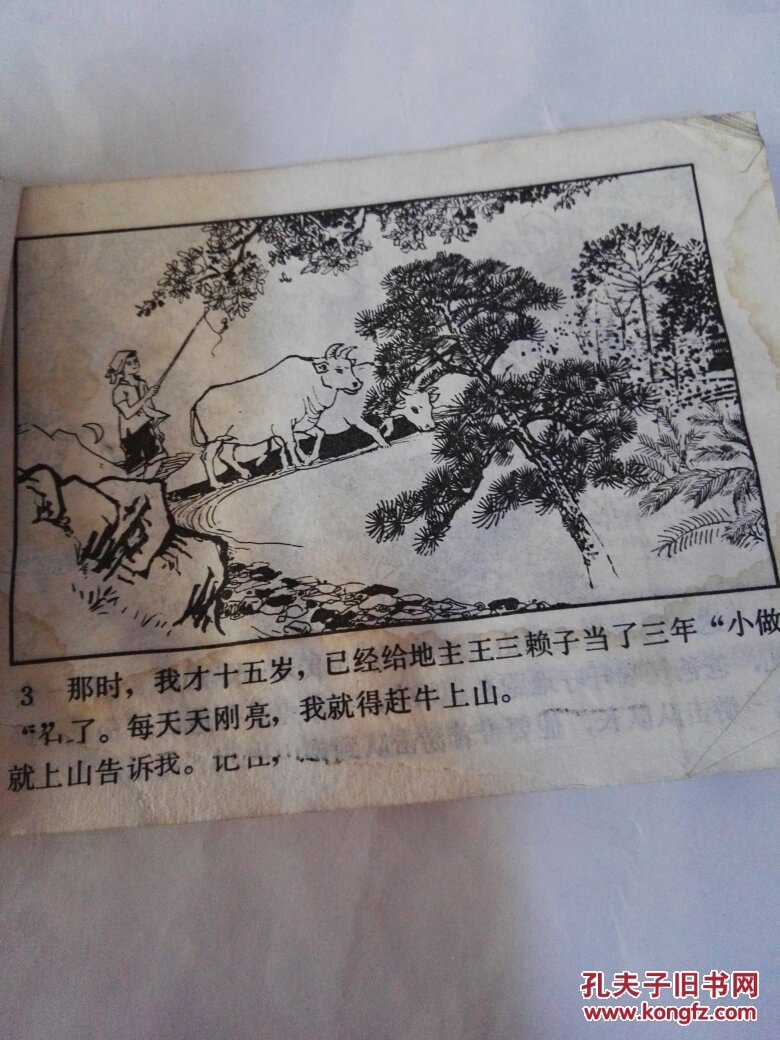 3 那时，我才十五岁，已经给地主王三赖子当了三年“小做
了。每天天刚亮，我就得赶牛上山。
就上山告诉我。记住，
孔夫子旧书网
www.kongfz.com